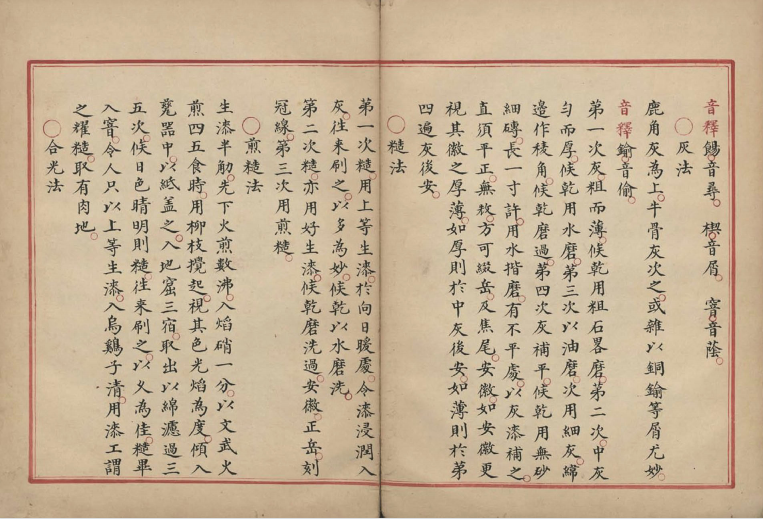 音釋鍚音尋。楔音屑。窨音蔭。
○灰法
鹿角灰為上。牛骨灰次之。或雜以銅鍮等屑尤妙。
音釋鍮音偷。
第一次灰。粗而薄。候乾用粗石畧磨。第二次。中灰
勻而厚。候乾用水磨。第三次以油磨。次用細灰。綿
邉作稜角。候乾磨過。第四次灰補平。候乾用無砂
細磚。長一寸許。用水揩磨。有不平處。以灰漆補之。
直須平正。無敖。方可綴岳。及焦尾。安徽。如安徽更
視其徽之厚薄。如厚則於中灰後安。如薄則於第
四遍灰後安。
○糙法
第一次糙。用上等生漆。於向日暖處。令漆浸潤入
灰。往來刷之。以多為妙。候乾以水磨洗。
第二次糙。亦用好生漆。候乾磨洗過。安徽。正岳。刻
冠線。第三次用煎糙。
○煎糙法
生漆半觔。先下火煎數沸。入焰硝一分。以文武火
煎四五食時。用柳枝攪起。視其色光焰為度。傾入
甆器中。以紙蓋之。入地窟三宿。取出以綿濾過三
五次。候日色晴明則糙。往來刷之。以乂為佳。糙畢
入窨。令人只以上等生漆。入烏鷄子清。用漆工謂
之糴糙。取有肉地。
○合光法